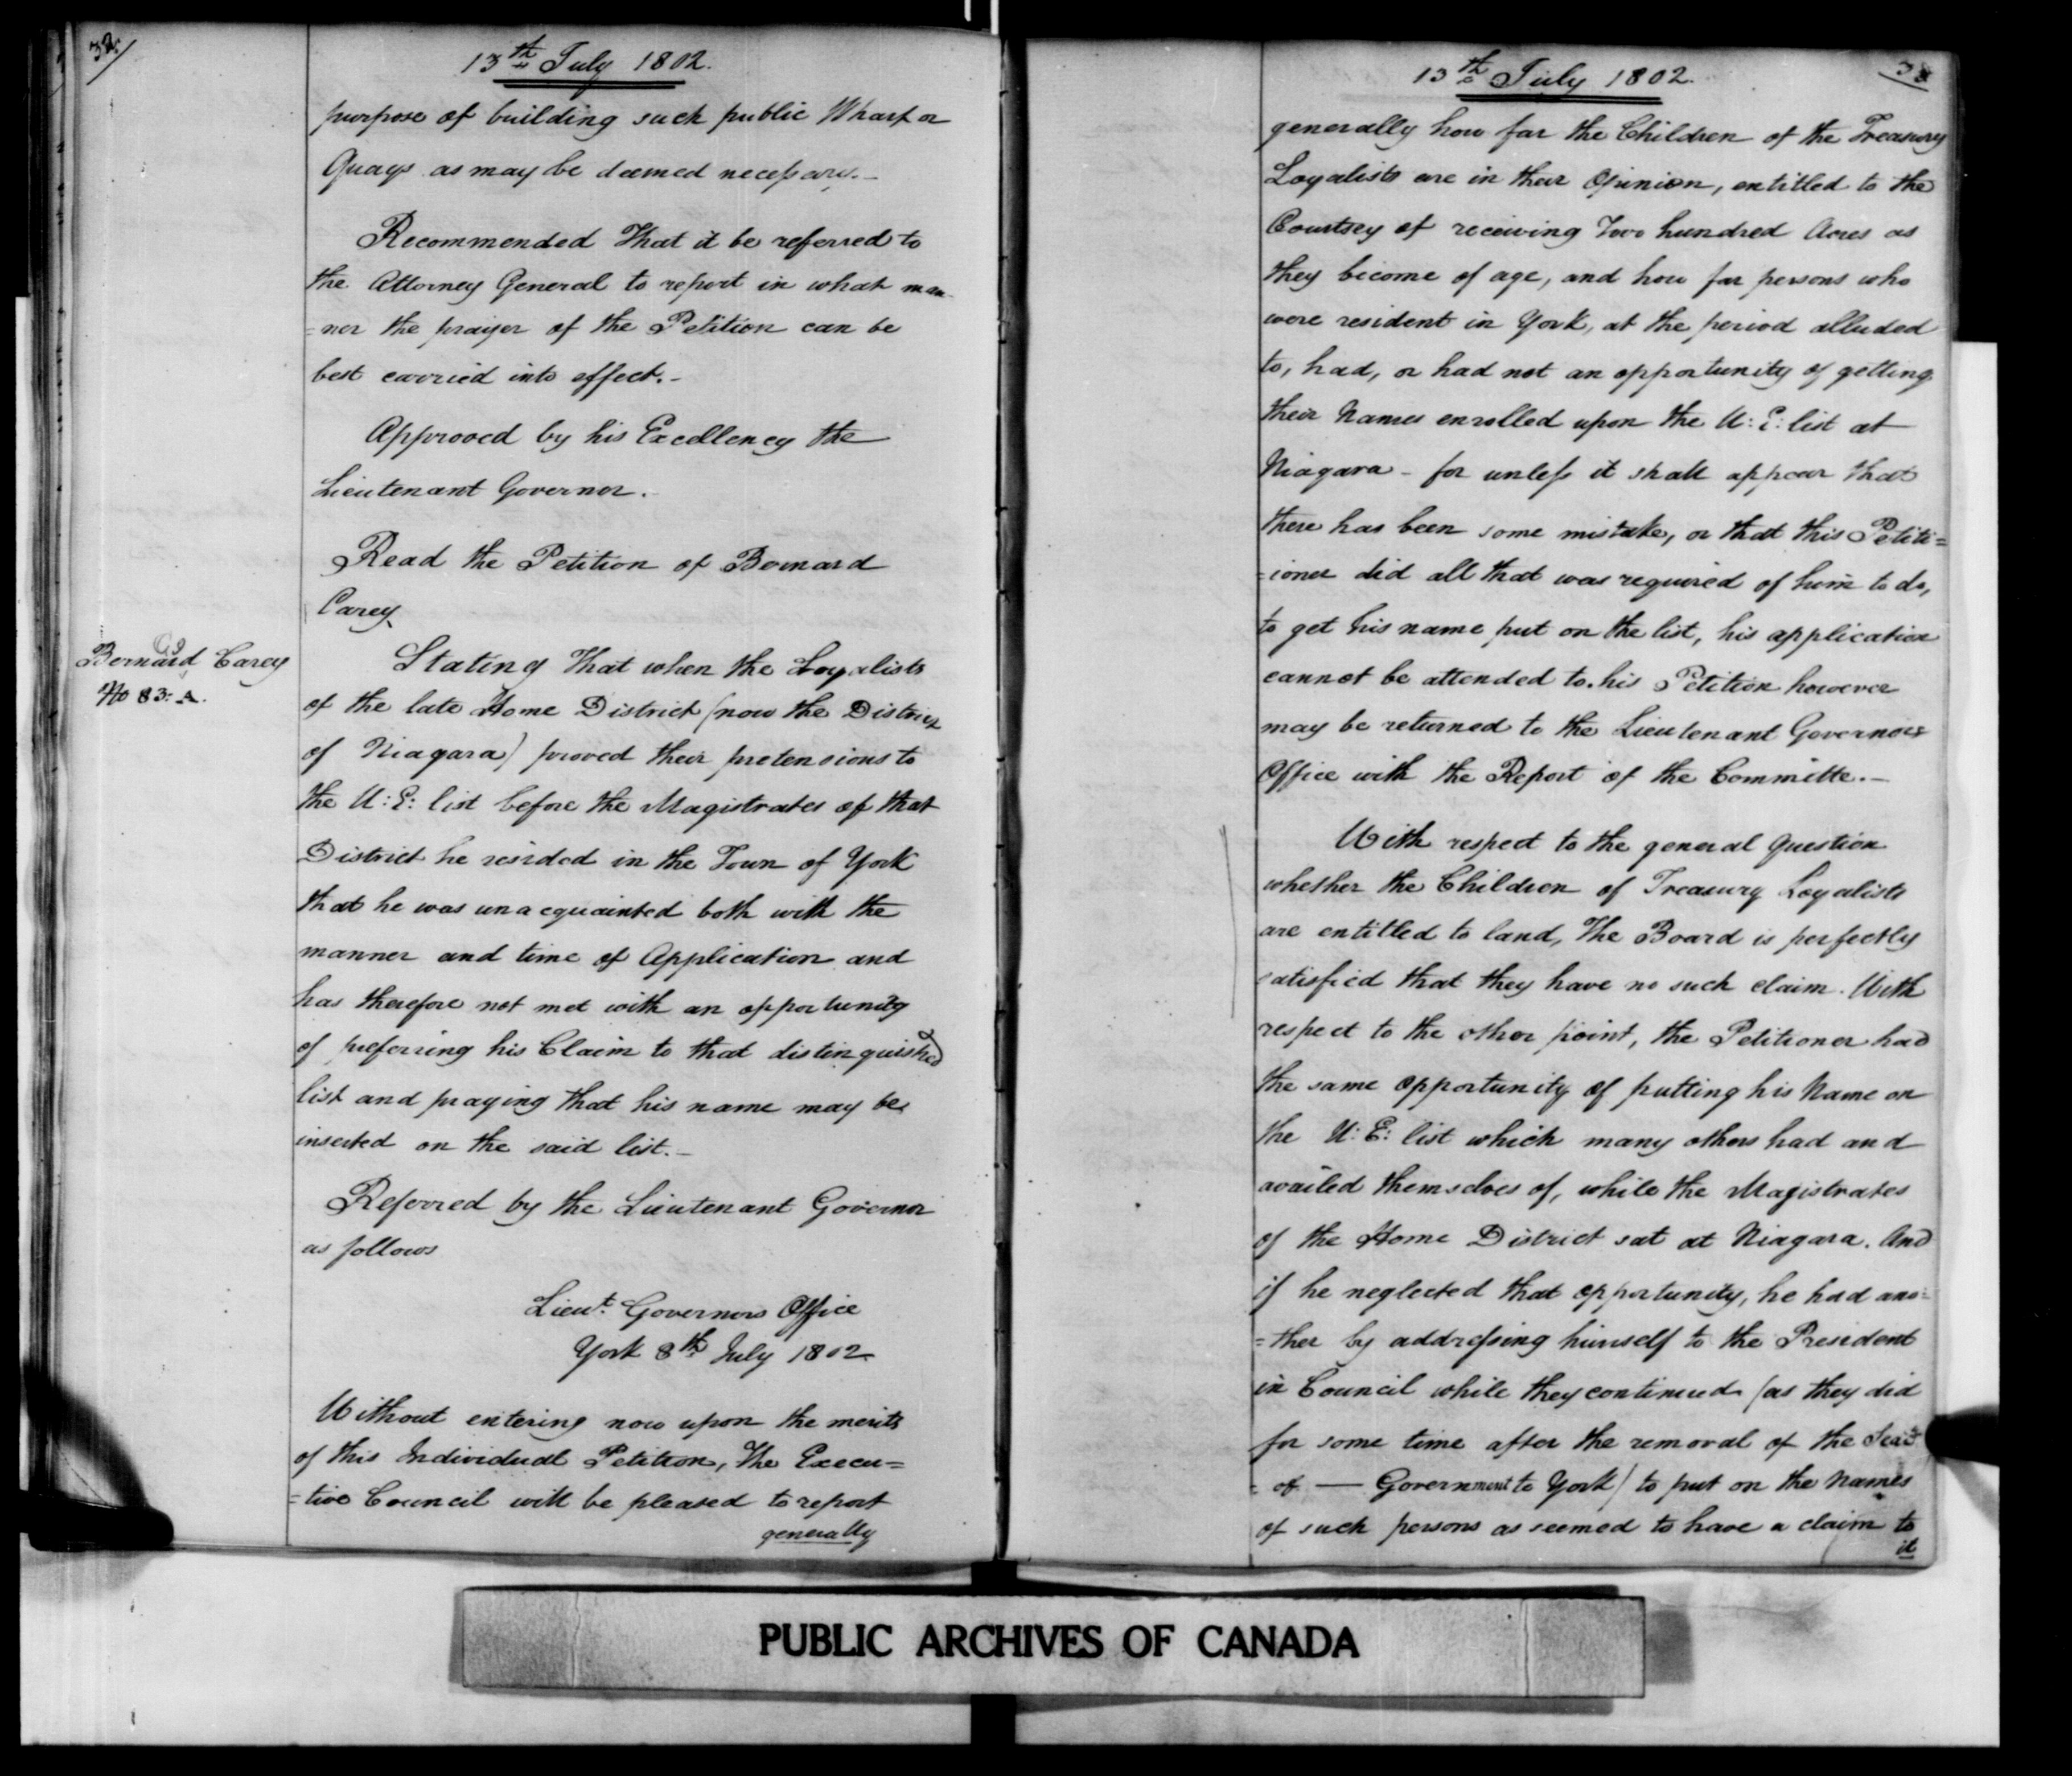 32/
13th July 1802.
purpose of building such public Wharf or
Quays as may be deemed necessary.-
Recommended That it be referred to
the Attorney General to report in what man-
=ner the prayer of the Petition can be
best carried into effect.-
Approved by his Excellency the
Lieutenant Governor.-
Read the Petition of Bernard
Carey
Bernard Carey
No 83. A.
Stating That when the Loyalists
of the late Home District (now the District
of Niagara) proved their pretensions to
the U: E: list before the Magistrates of that
District he resided in the Town of York
that he was unacquainted both with the
manner and time of Application and
has therefore not met with an opportunity
of preferring his Claim to that distinguished
list and praying that his name may be
inserted on the said list.-
Referred by the Lieutenant Governor
as follows
Lieut. Governors Office
York 8th July 1802
Without entering now upon the merits
of this Individual Petition, The Execu=
=tive Council will be pleased to report
generally
13th July 1802.
generally how far the Children of the Treasury
Loyalists are in their Opinion, entitled to the
Courtsey of receiving Two hundred Acres as
they become of age, and how far persons who
were resident in York, at the period alluded
to, had, or had not an opportunity of getting
their Names enrolled upon the U: E: list at
Niagara - for unless it shall appear that
there has been some mistake, or that this Petiti=
=ioner did all that was required of him to do,
to get his name put on the list, his application
cannot be attended to. his Petition however
may be returned to the Lieutenant Governors
Office with the Report of the Committe.-
With respect to the general Question
whether the Children of Treasury Loyalists
are entitled to land, The Board is perfectly
satisfied that they have no such claim. With
respect to the other point, the Petitioner had
the same opportunity of putting his Name on
the U: E: list which many others had and
availed themselves of, while the Magistrates
of the Home District sat at Niagara. And
if he neglected that opportunity, he had ano=
=ther by addressing himself to the President
in Council while they continued (as they did
for some time after the removal of the Seat
- of — Government to York) to put on the Names
of such persons as seemed to have a claim to
it
PUBLIC ARCHIVES OF CANADA